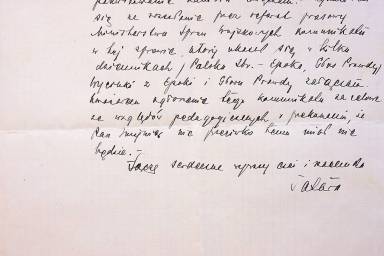 się za
Ministerstwa Spraw Wojskowych komunikatu
w tej sprawie, który ukazał się w kilku
dziennikach / Polska Zbr. - Epoka, Głos Prawdy/
Wycinki z Epoki i Głosu Prawdy załączam.
Uważam ogłoszenie tego komunikatu za celowe
ze względów pedagogicznych i przekonany, że
Pan nic przeciwko temu mieć nie
będzie. -
Łączę serdeczne wyrazy czci i